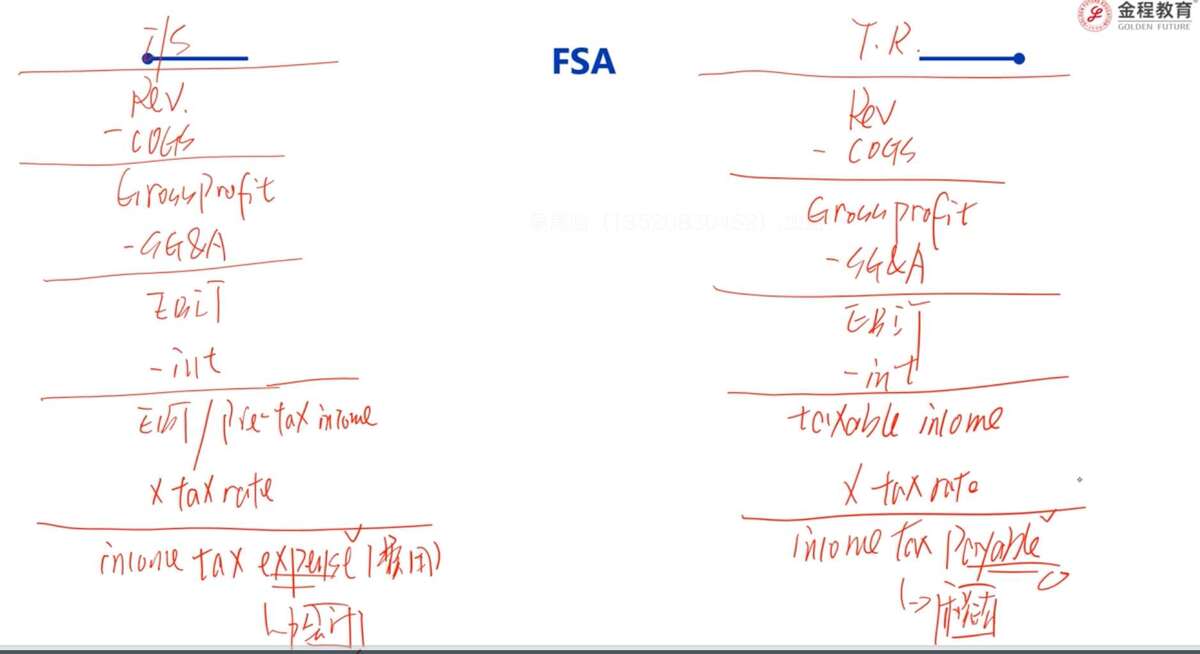 金程教育
GOLDEN FUTURE
FSA
I/S
Rev.
- COGS
Gross profit
- SG&A
EBIT
- int
EBT / pre-tax income
x tax rate
income tax expense (费用)
会计
T.R.
Rev
- COGS
Gross profit
- SG&A
EBIT
- int
taxable income
x tax rate
income tax payable
税法